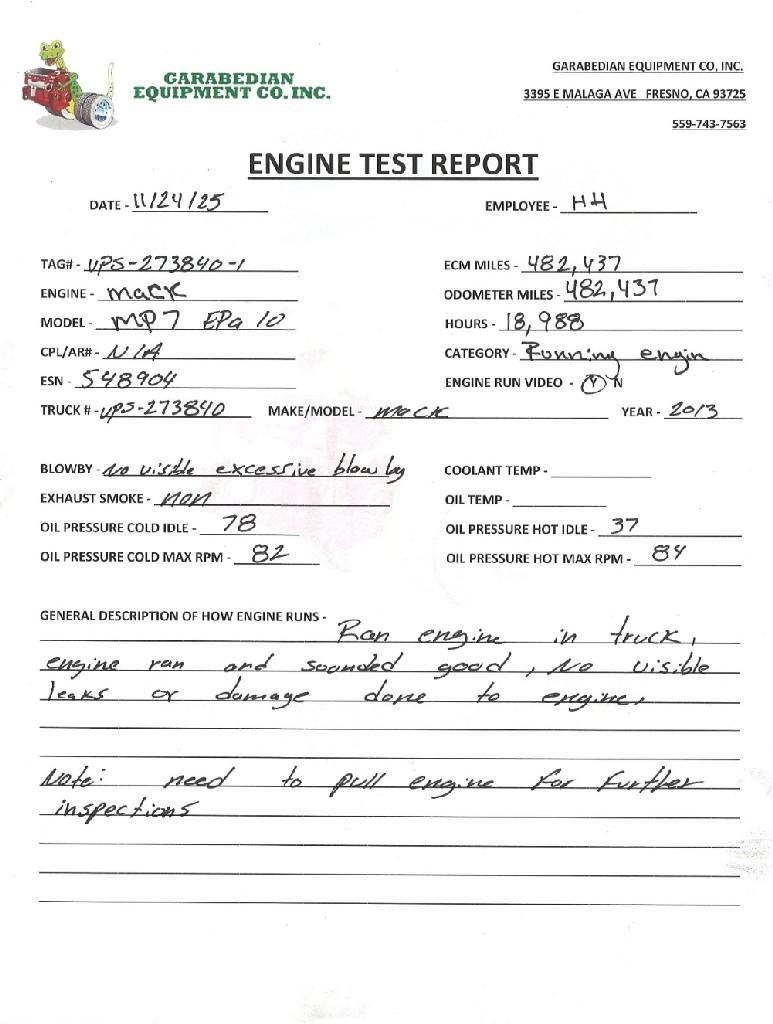 GARABEDIAN
EQUIPMENT CO. INC.
GARABEDIAN EQUIPMENT CO, INC.
3395 E MALAGA AVE FRESNO, CA 93725
559-743-7563
ENGINE TEST REPORT
DATE - 11/24/25 EMPLOYEE - HH
TAG# - UPS-273840-1 ECM MILES - 482,437
ENGINE - Mack ODOMETER MILES - 482,437
MODEL - MP7 EPa 10 HOURS - 18,988
CPL/AR# - N/A CATEGORY - Running engin
ESN - 548904 ENGINE RUN VIDEO - Y N
TRUCK # - UPS-273840 MAKE/MODEL - Mack YEAR - 2013
BLOWBY - No visible excessive blow by COOLANT TEMP -
EXHAUST SMOKE - non OIL TEMP -
OIL PRESSURE COLD IDLE - 78 OIL PRESSURE HOT IDLE - 37
OIL PRESSURE COLD MAX RPM - 82 OIL PRESSURE HOT MAX RPM - 84
GENERAL DESCRIPTION OF HOW ENGINE RUNS - Ran engine in truck,
engine ran and sounded good, No visible
leaks or damage done to engine.
Note: need to pull engine for further
inspections